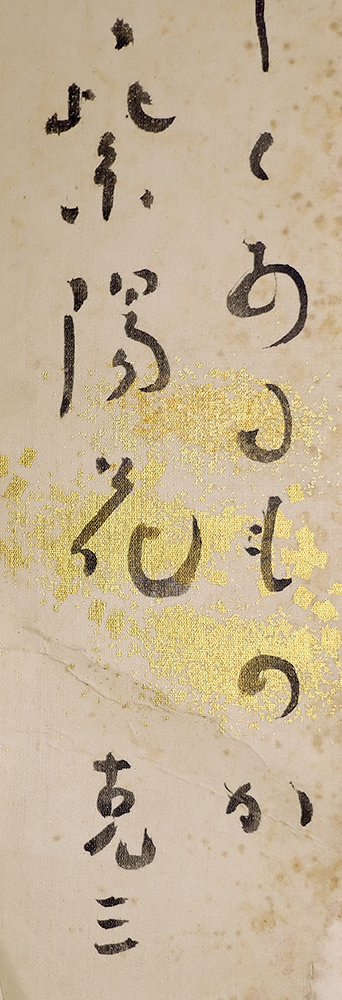 しくあるものか
紫陽花
克三